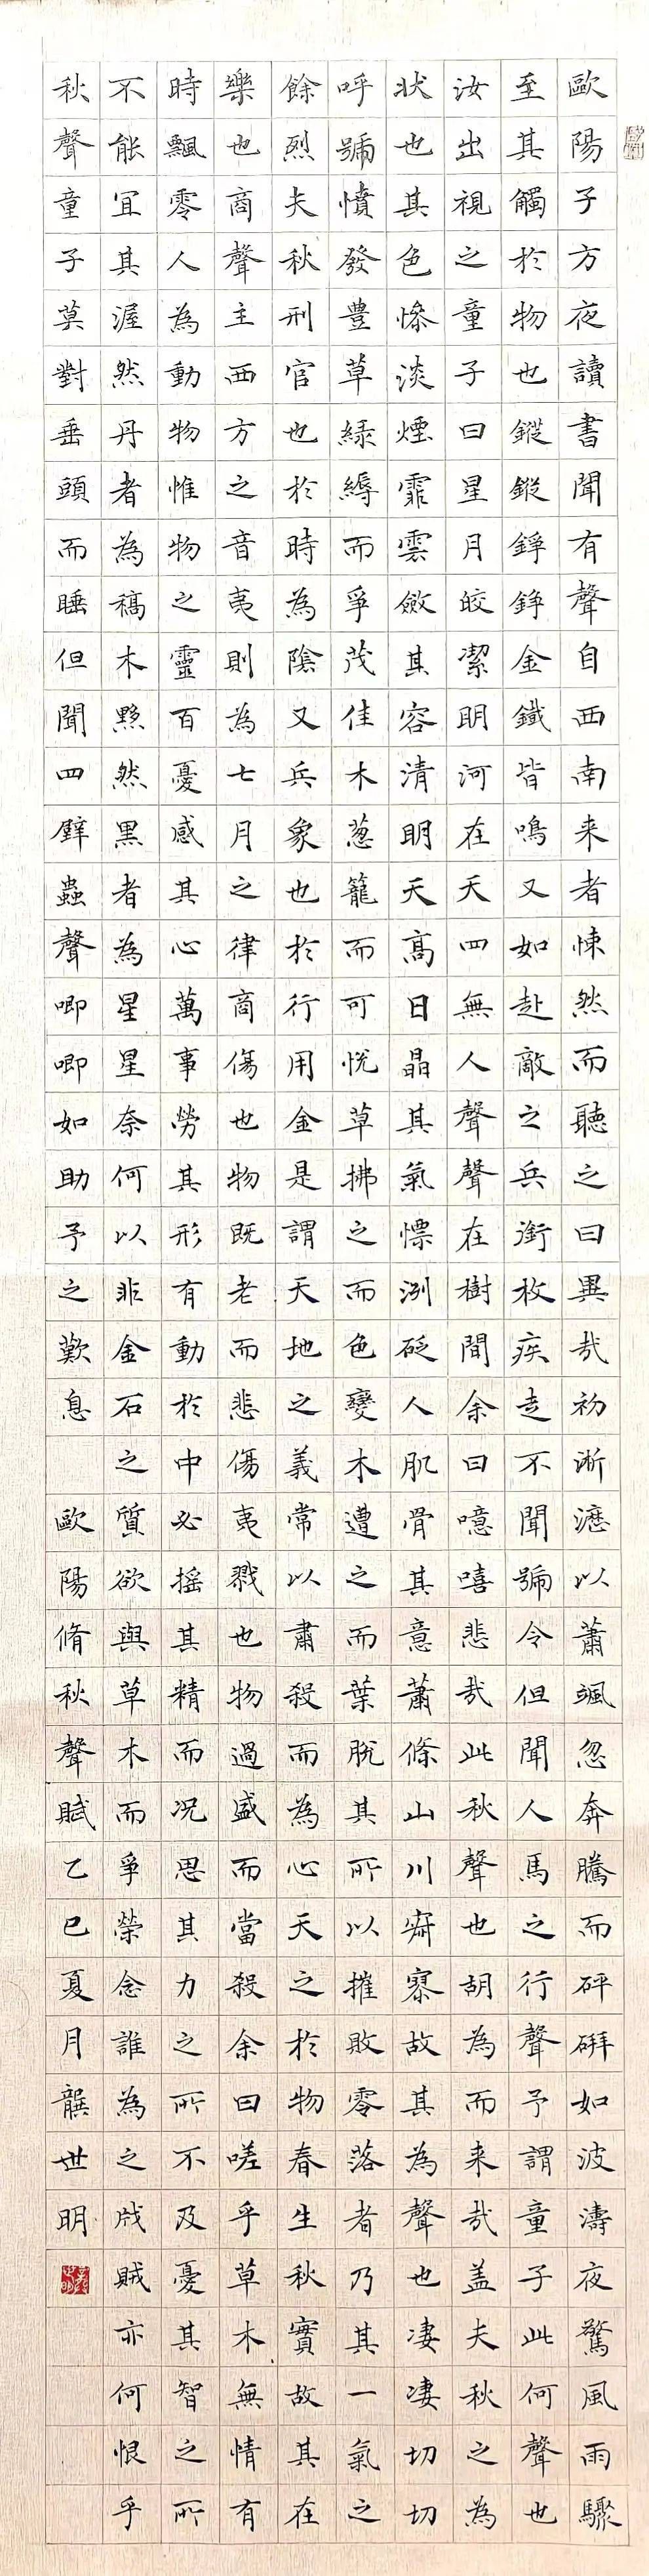 歐陽子方夜讀書聞有聲自西南来者悚然而聽之曰異哉初淅瀝以蕭颯忽奔騰而砰硑如波濤夜驚風雨驟
至其觸於物也鏦鏦錚錚金鐵皆鳴又如赴敵之兵銜枚疾走不聞號令但聞人馬之行聲予謂童子此何聲也
汝出視之童子曰星月皎潔明河在天四無人聲聲在樹間余曰噫嘻悲哉此秋聲也胡為而来哉盖夫秋之為
狀也其色慘淡煙霏雲斂其容清明天高日晶其氣慄冽砭人肌骨其意蕭條山川寂寥故其為聲也凄凄切切
呼號憤發豊草緑縟而爭茂佳木葱籠而可悅草拂之而色變木遭之而葉脫其所以摧敗零落者乃其一氣之
餘烈夫秋刑官也於時為陰又兵象也於行用金是謂天地之義常以肅殺而為心天之於物春生秋實故其在
樂也商聲主西方之音夷則為七月之律商傷也物既老而悲傷夷戮也物過盛而當殺余曰嗟乎草木無情有
時飄零人為動物惟物之靈百憂感其心萬事勞其形有動於中必搖其精而况思其力之所不及憂其智之所
不能宜其渥然丹者為稿木黟然黑者為星星奈何以非金石之質欲與草木而爭榮念誰為之戕賊亦何恨乎
秋聲童子莫對垂頭而睡但聞四壁蟲聲唧唧如助予之歎息 歐陽脩秋聲賦乙巳夏月龔世明